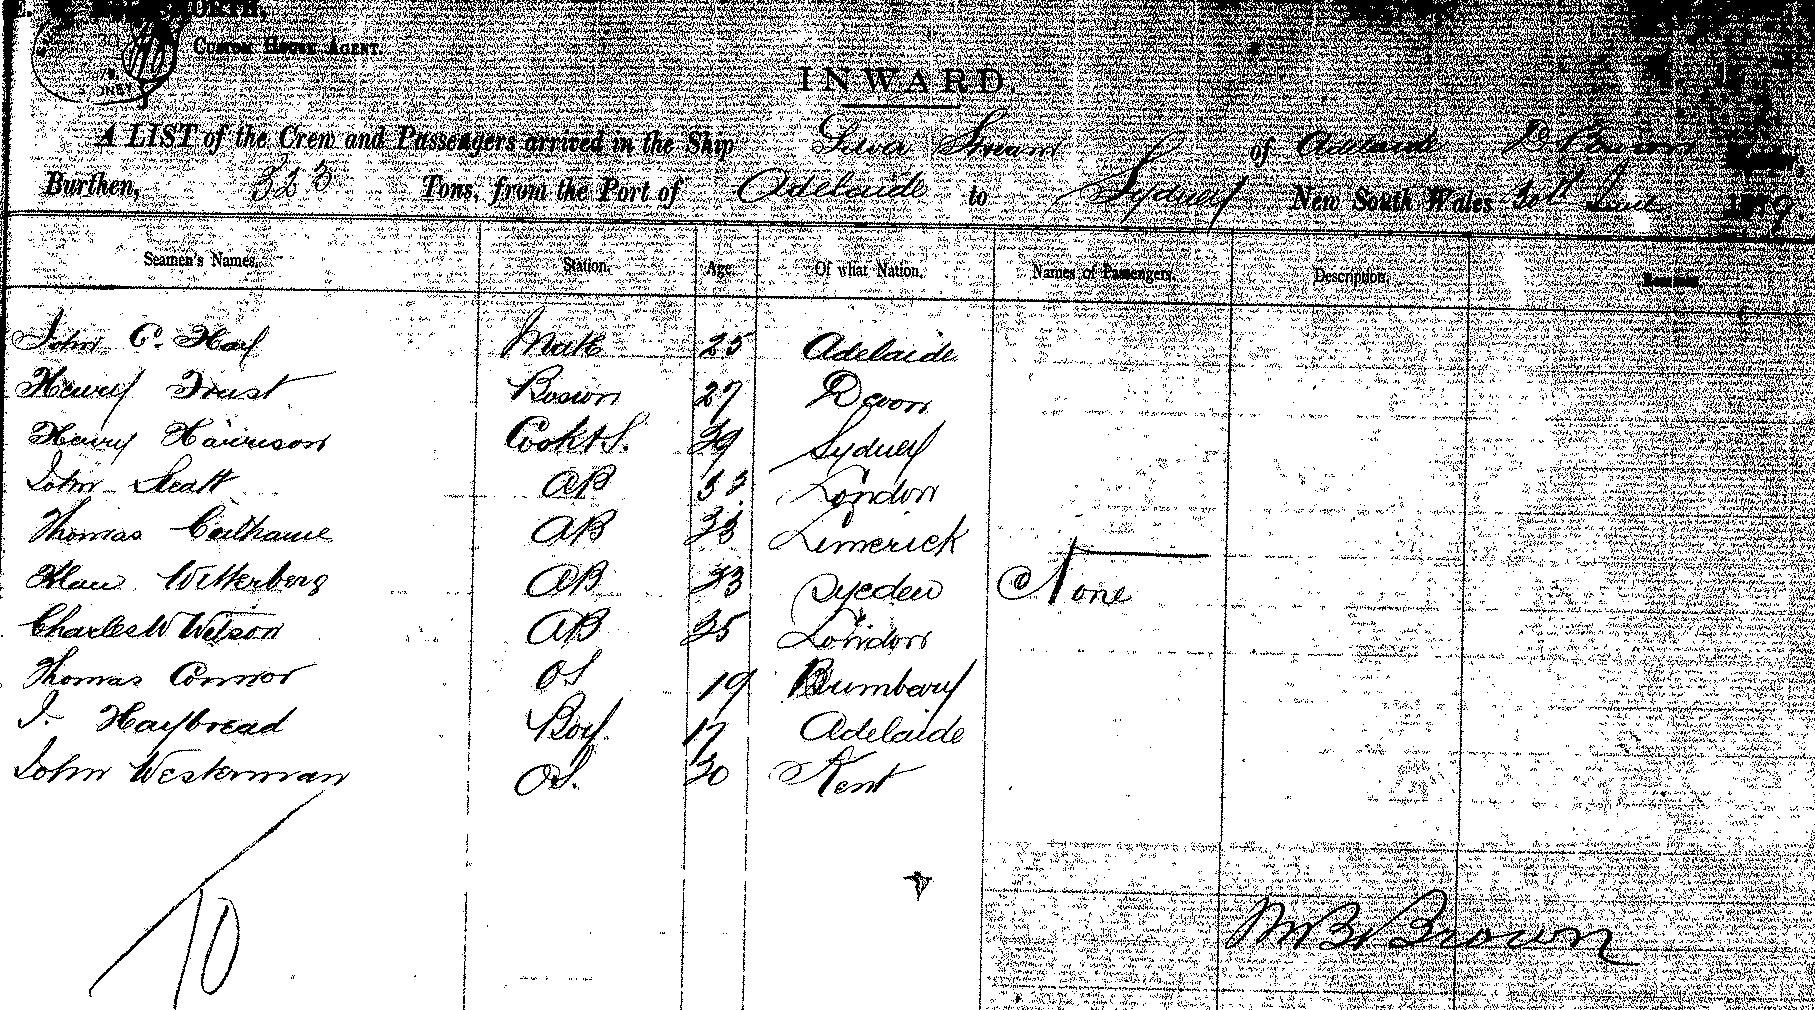 CUSTOM HOUSE AGENT.
INWARD.
A LIST of the Crew and Passengers arrived in the Ship of Adelaide
Burthen, 323 Tons, from the Port of Adelaide to Sydney New South Wales 30th June 1879
Seamen's Names. Station. Age Of what Nation. Names of Passengers. Description.
John C. Hay Mate 25 Adelaide
Henry Trust Bosun 27 Devon
Henry Harrison Cook & S. 39 Sydney
John AB 33 London
Thomas AB 33 Limerick
Witterberg AB 33 None
Charles W Watson AB 35 London
Thomas Connor OS 19
J. Haybread Boy 17 Adelaide
John Westerman OS. 30 Kent
10
Brown